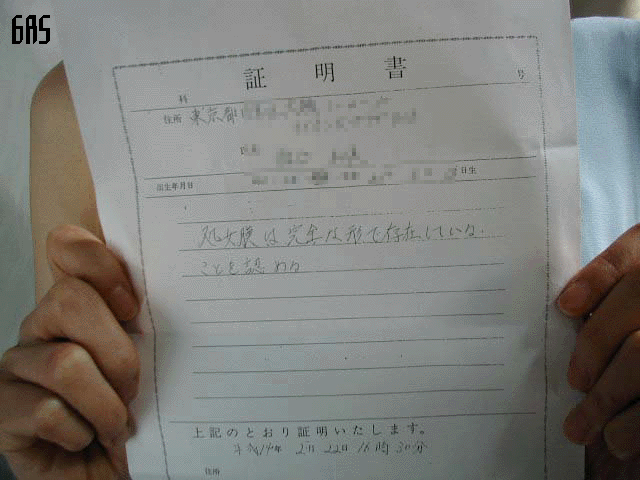 GAS
証明書
科
号
住所 東京都
出生年月日 日生
処女膜は完全な形で存在している.
ことを認める
上記のとおり証明いたします。
平成14年 2月 22日 16時 30分
住所